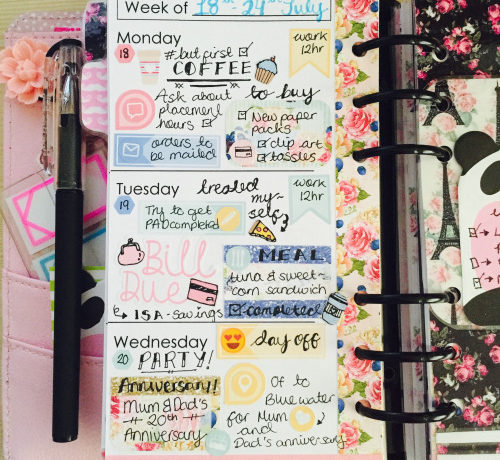 Week of 18th - 24th July
Monday
work
12hr
18
#but first
COFFEE
Ask about
placement
hours
to buy
New paper
packs
clip art
tassles
orders to
be mailed
Tuesday
treated
my-
self
work
12hr
19
Try to get
PAD completed
Bill
Due
ISA - savings
MEAL
tuna & sweet-
corn sandwich
completed
Wednesday
day off
20
PARTY!
Anniversary!
Mum & Dad's
20th
Anniversary
Of to
Bluewater
for Mum
and
Dad's anniversary